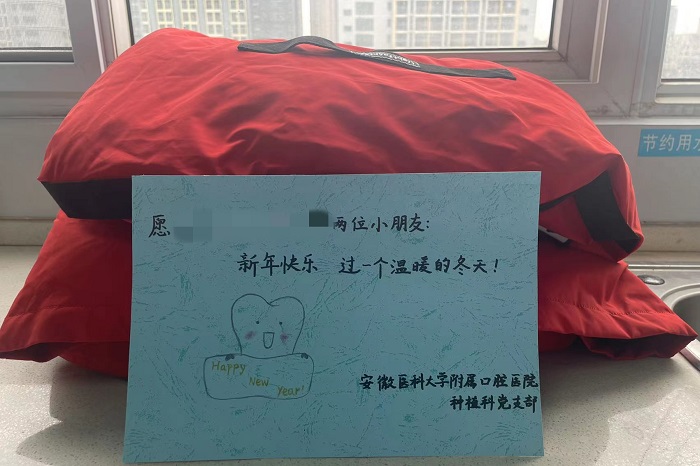 愿 两位小朋友:
新年快乐 过一个温暖的冬天!
Happy
New
Year!
安徽医科大学附属口腔医院
种植科党支部
节约用水